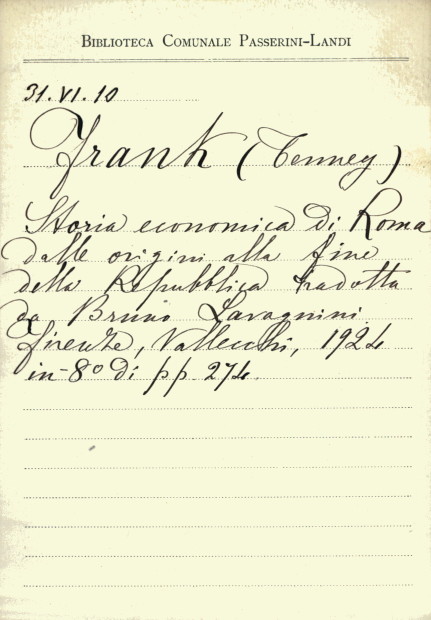 BIBLIOTECA COMUNALE PASSERINI-LANDI
31.VI.10
Frank (Tenney)
Storia economica di Roma
dalle origini alla fine
della Repubblica tradotta
da Bruno Lavagnini.
Firenze, Vallecchi, 1924
in-8º di pp. 274.